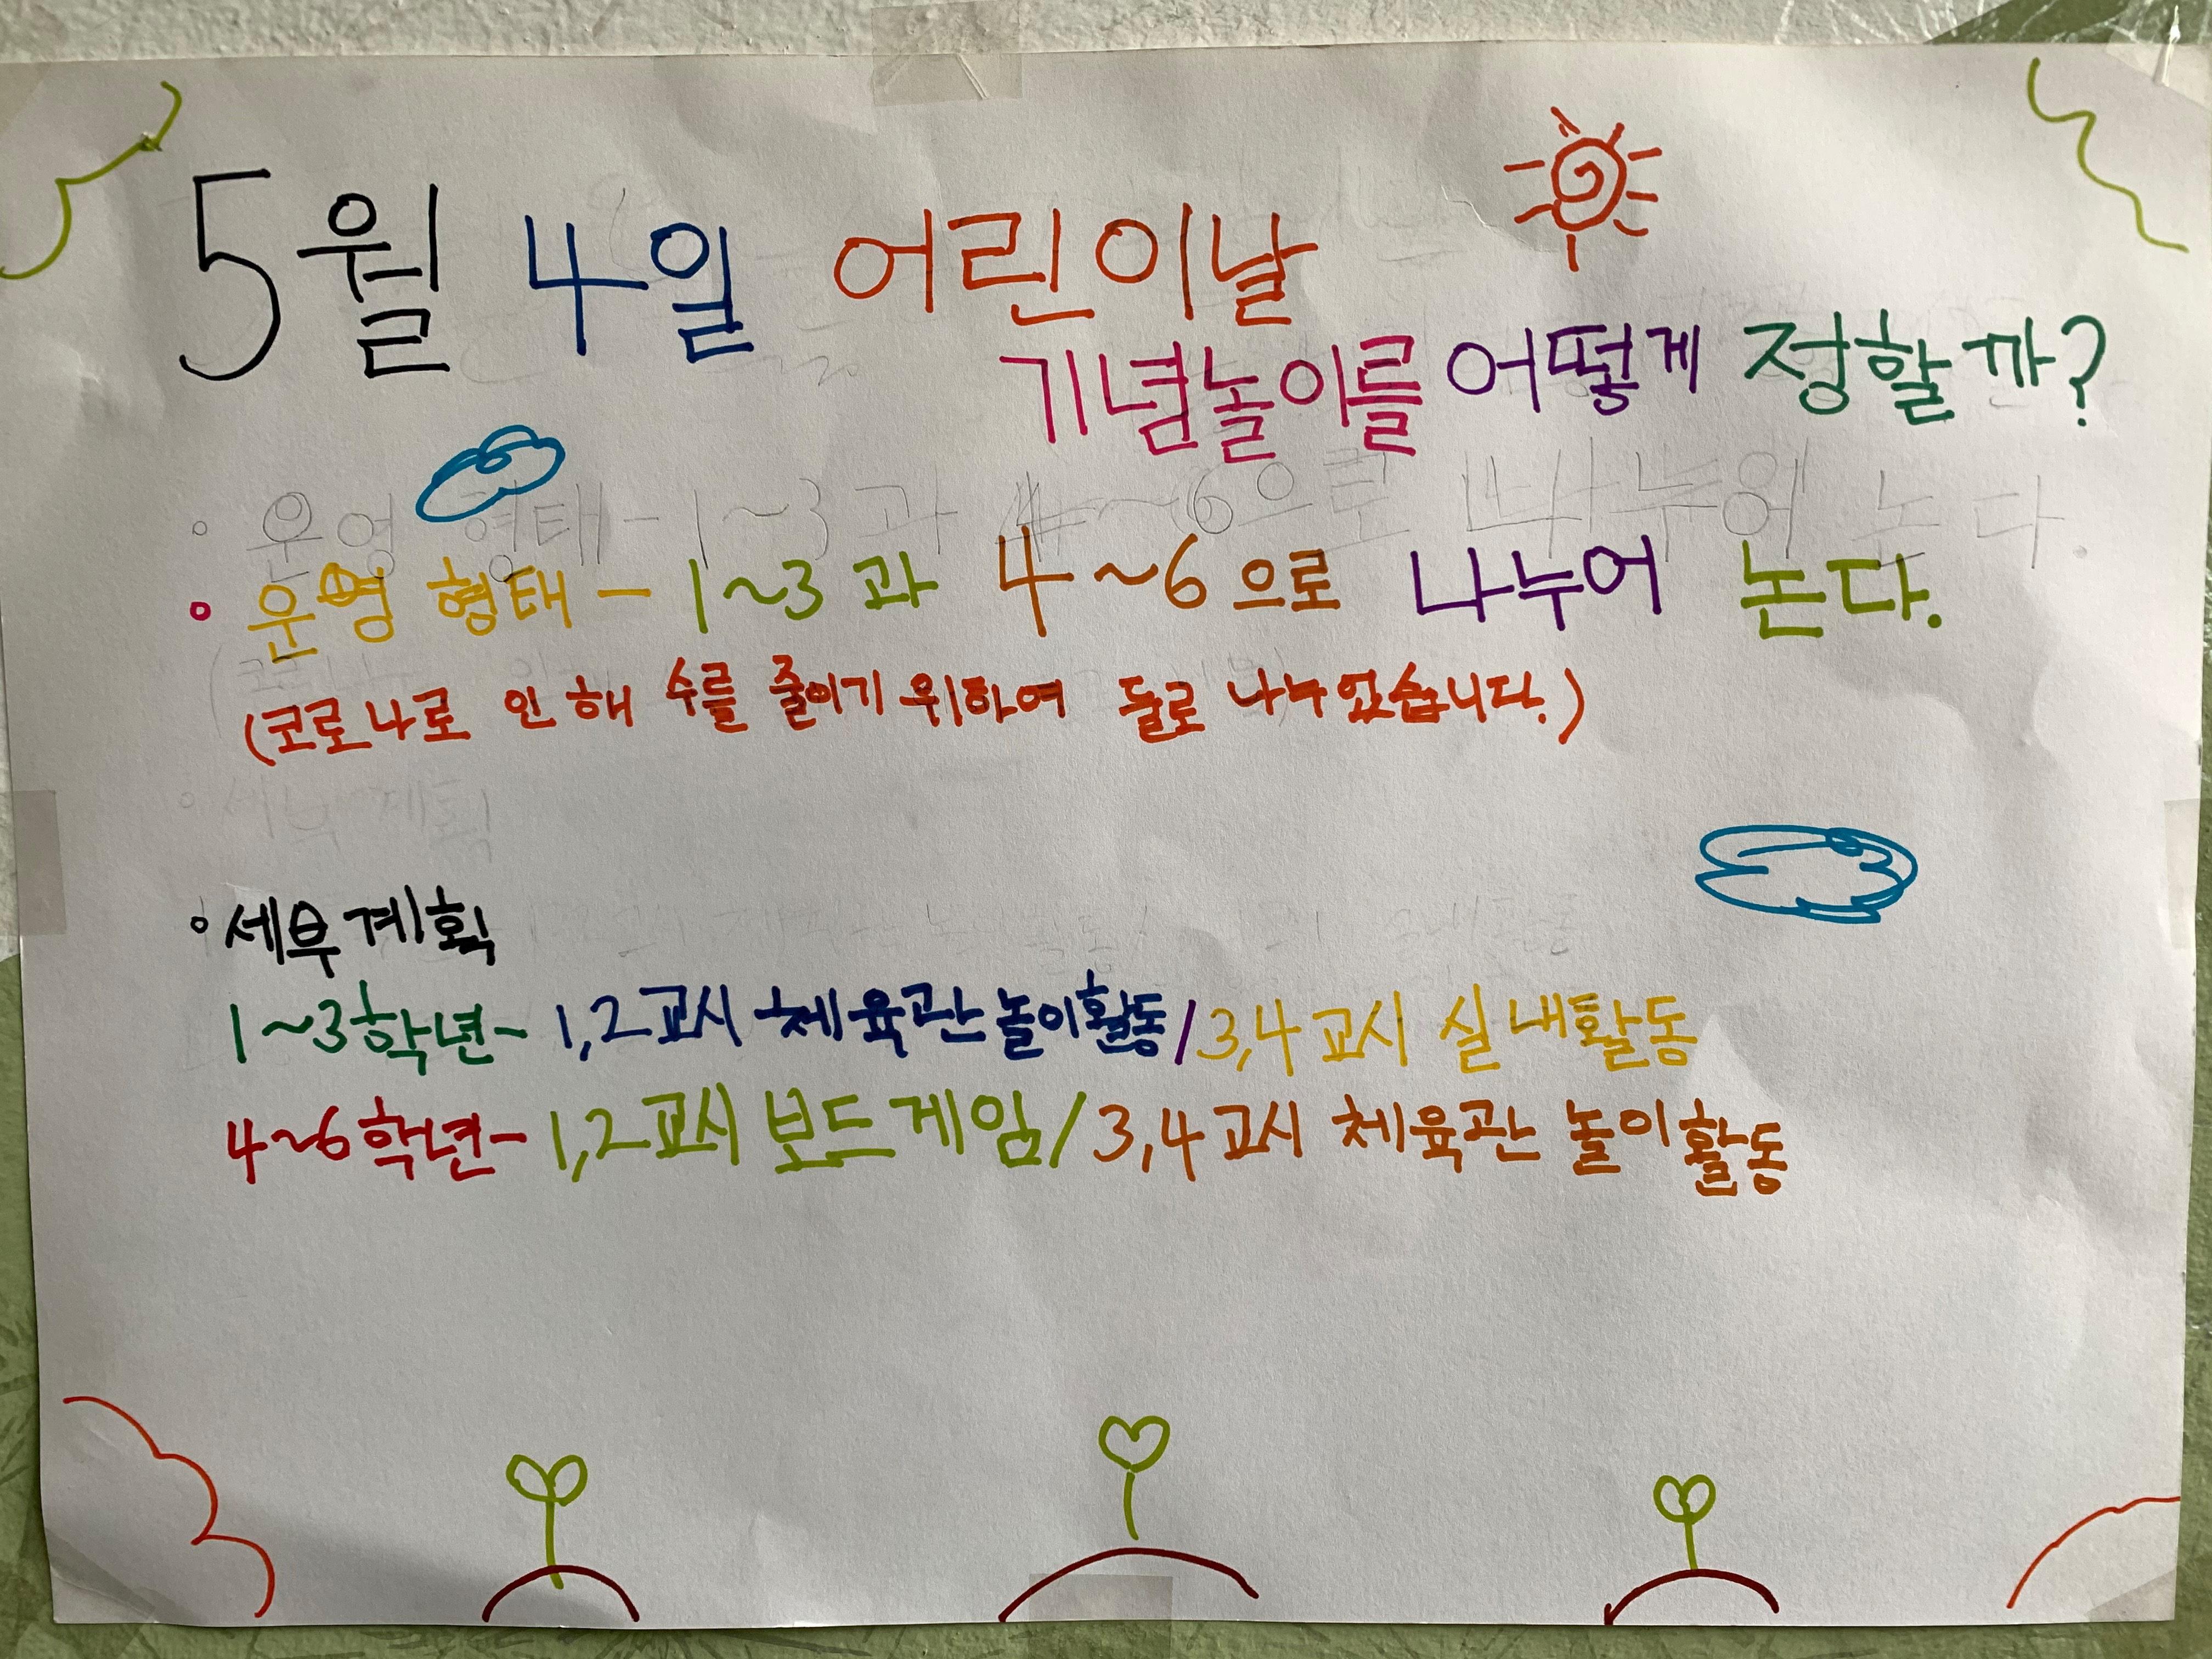 5월 4일 어린이날
기념놀이를 어떻게 정할까?
◦ 운영 형태 - 1~3과 4~6으로 나누어 논다.
◦ 운영 형태 - 1~3과 4~6으로 나누어 논다.
(코로나로 인해 수를 줄이기 위하여 둘로 나누었습니다.)
◦ 세부 계획
◦ 세부계획
1~3학년- 1,2교시 체육관 놀이활동/3,4교시 실내활동
4~6학년- 1,2교시 보드게임/3,4교시 체육관 놀이활동